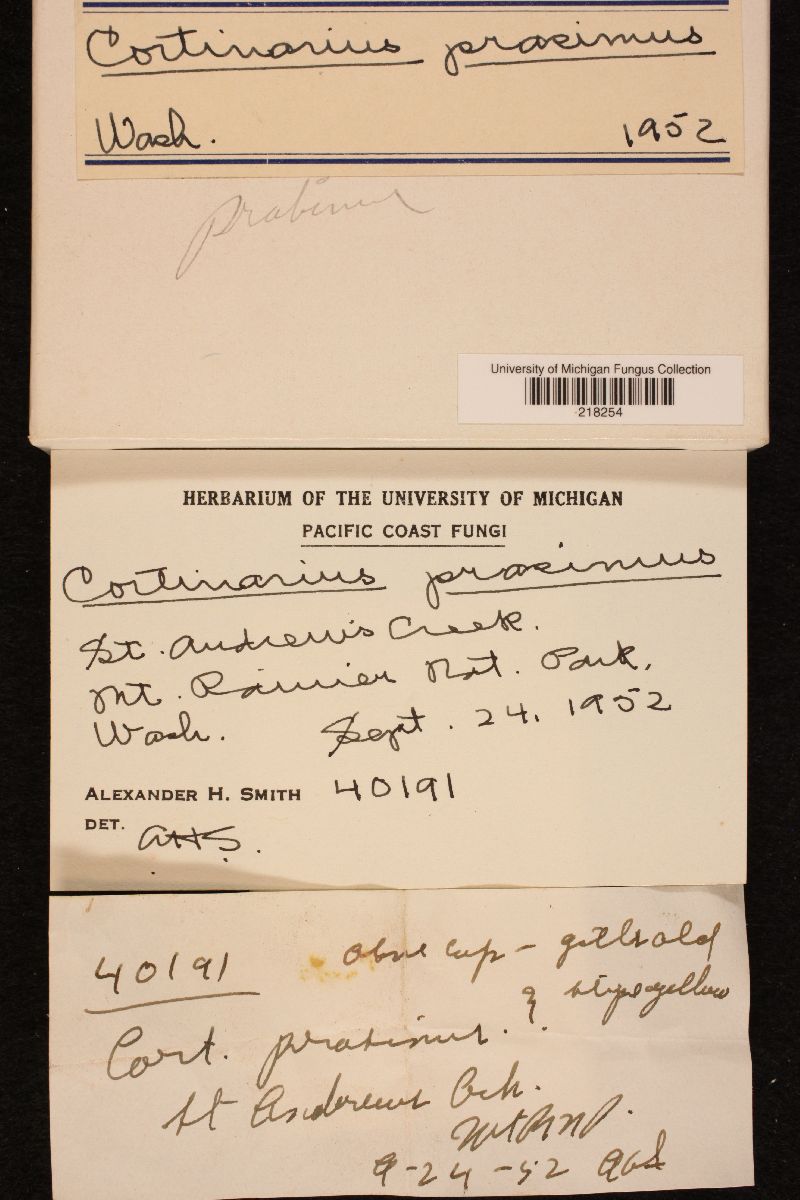 Cortinarius prasimus
Wash. 1952
prasimus
University of Michigan Fungus Collection
218254
HERBARIUM OF THE UNIVERSITY OF MICHIGAN
PACIFIC COAST FUNGI
Cortinarius prasimus
St. Andrews Creek.
Mt. Rainier Nat. Park,
Wash. Sept. 24, 1952
ALEXANDER H. SMITH 40191
DET. AHS.
40191 olive cap - gills old
& stipe yellow
Cort. prasimus.
St Andrews Crk.
Mt R N P.
9-24-52 AHS